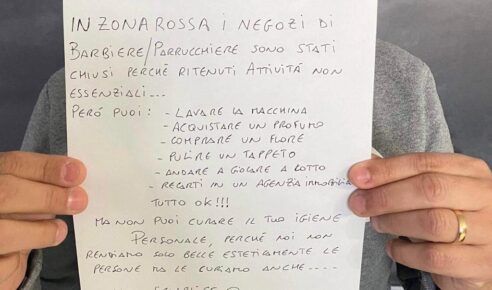 IN ZONA ROSSA I NEGOZI DI
BARBIERE/PARRUCCHIERE SONO STATI
CHIUSI PERCHÉ RITENUTI ATTIVITÀ NON
ESSENZIALI...
PERÓ PUOI: - LAVARE LA MACCHINA
- ACQUISTARE UN PROFUMO
- COMPRARE UN FIORE
- PULIRE UN TAPPETO
- ANDARE A GIOCARE A LOTTO
- RECARTI IN UN AGENZIA IMMOBILIA
TUTTO OK!!!
MA NON PUOI CURARE IL TUO IGIENE
PERSONALE, PERCHÉ NOI NON
RENDIAMO SOLO BELLE ESTETICAMENTE LE
PERSONE MA LE CURIAMO ANCHE....